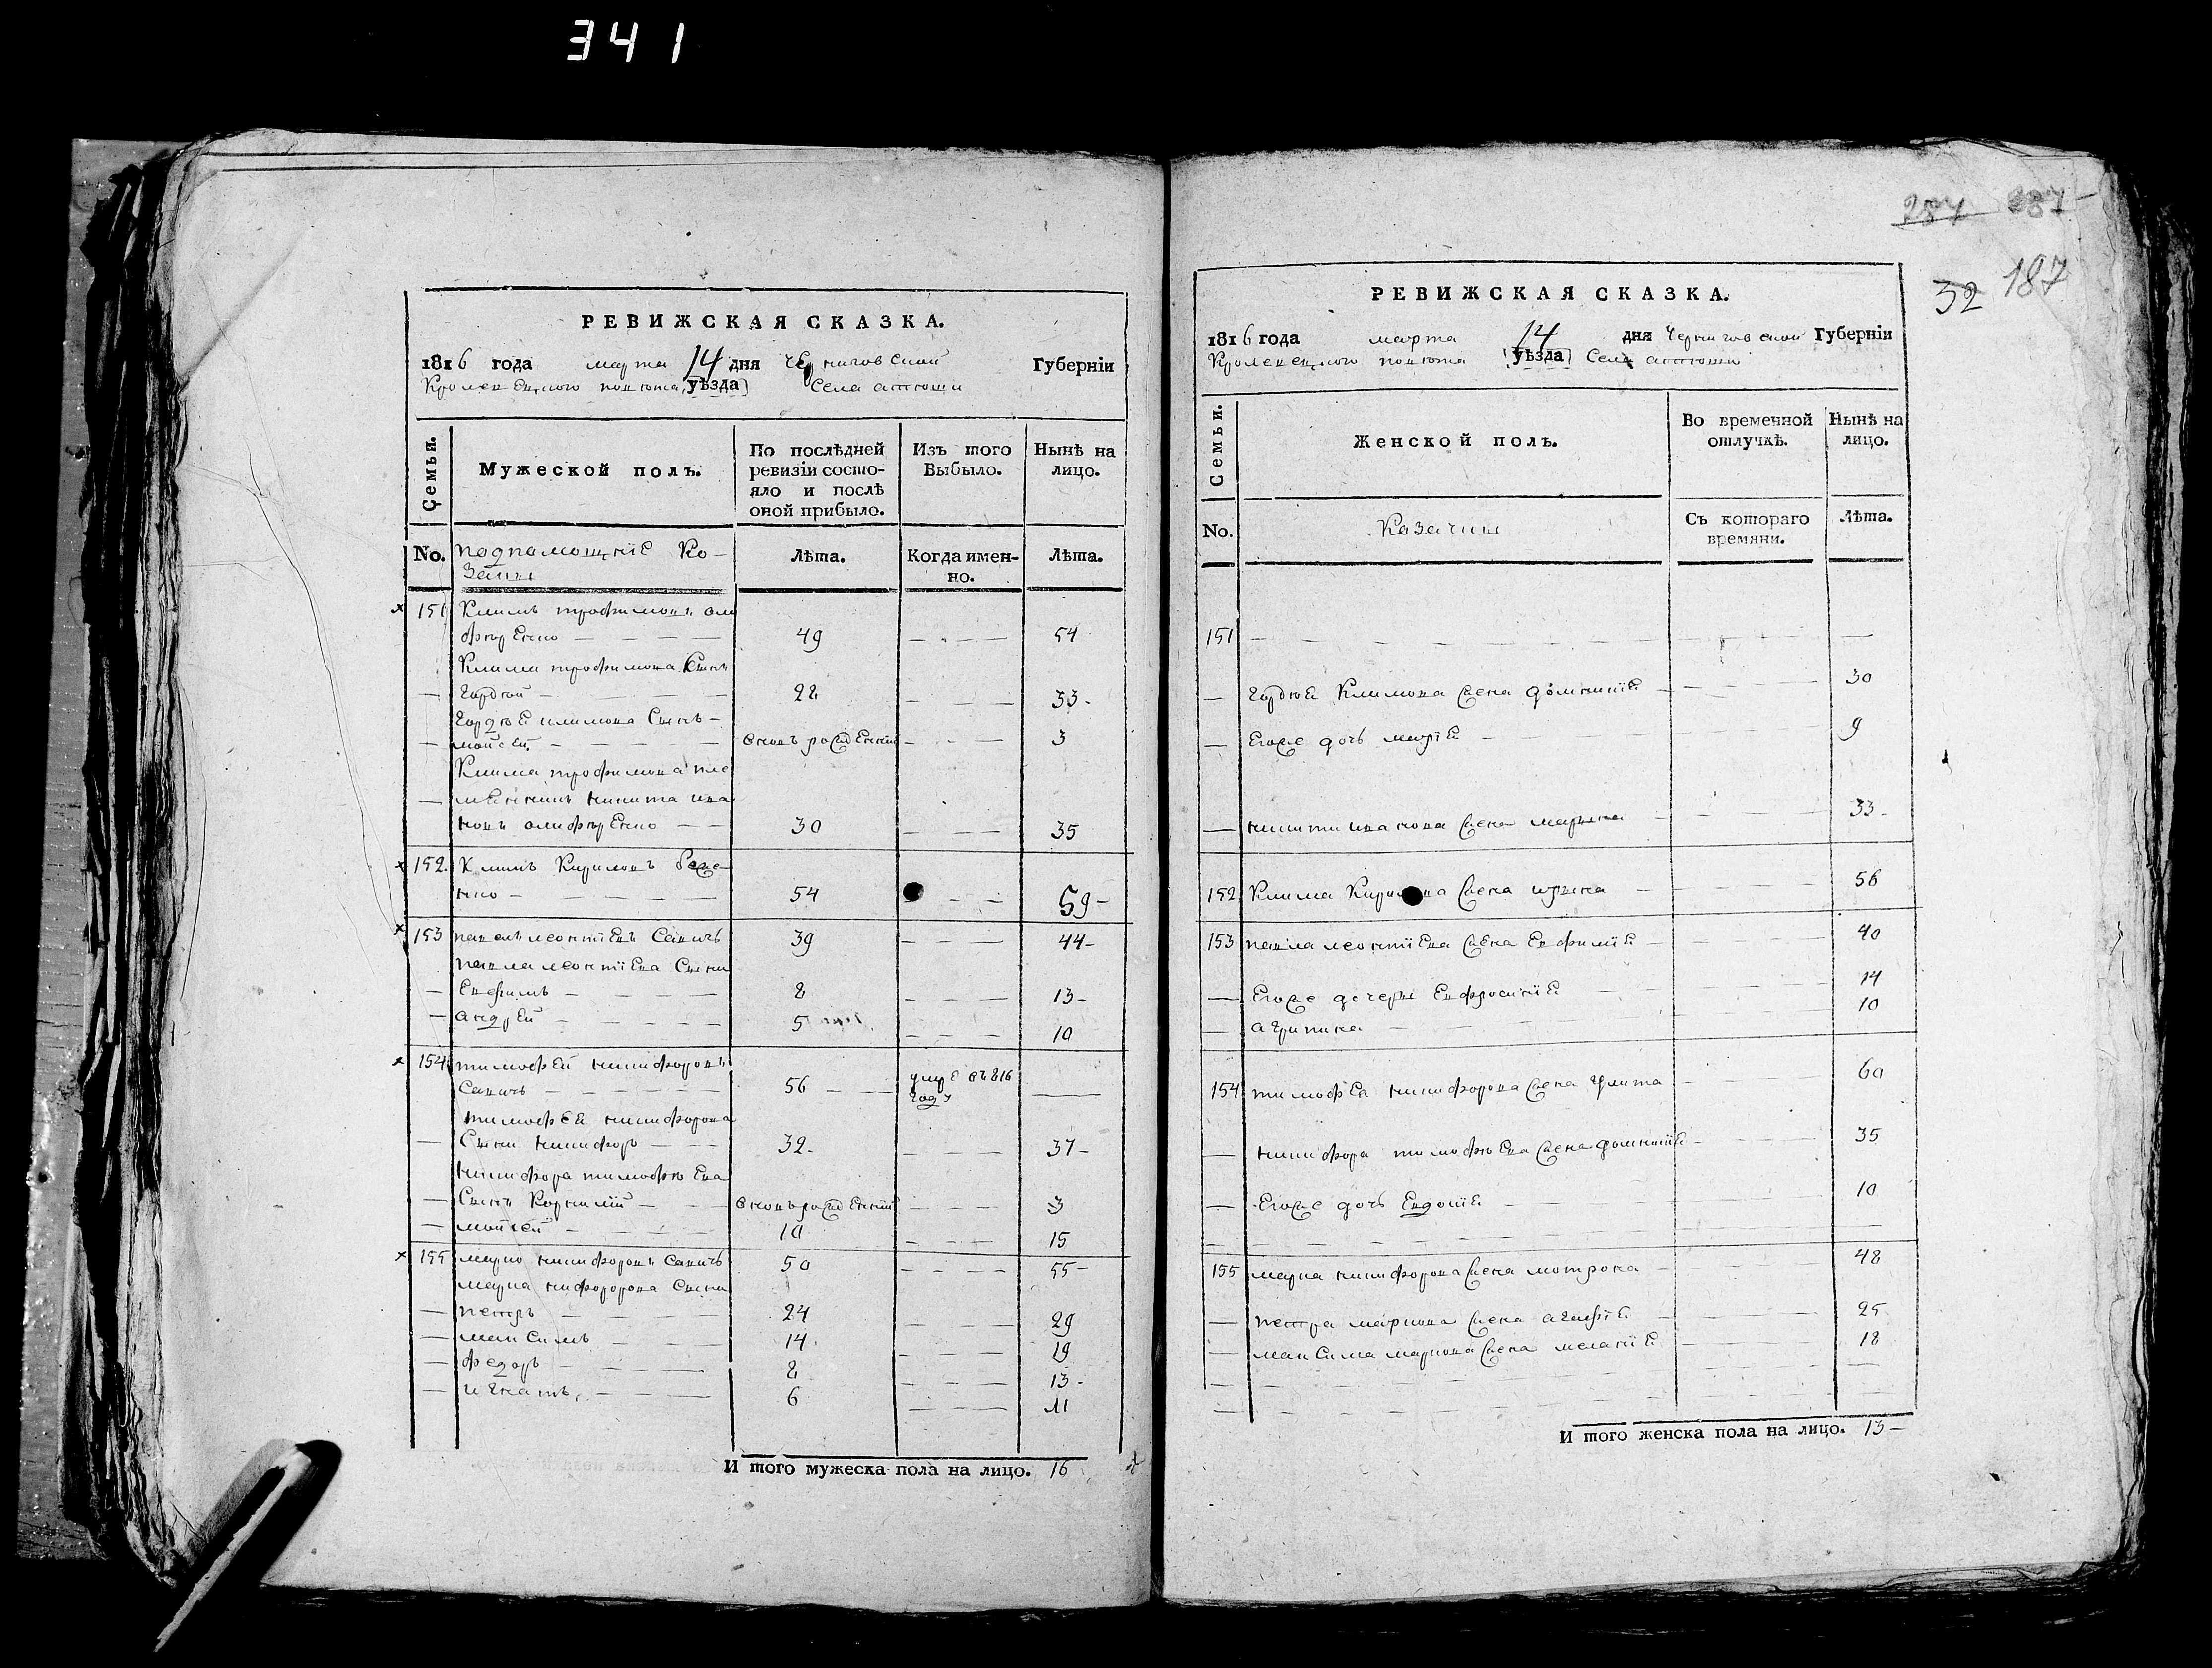 341
287 887
32 187
РЕВИЖСКАЯ СКАЗКА.
1816 года марта 14 дня Черниговской Губернiи
Кролевецкого повѣта (уѣзда) Села атюши
Семьи.
Мужеской полъ.
По послѣдней ревизiи состо-
яло и послѣ
оной прибыло.
Изъ того
Выбыло.
Нынѣ на
лицо.
No.
подпамощнiе Ко-
заки
Лѣта.
Когда имен-
но.
Лѣта.
151 Климъ трофимовъ оли
фѣренко — 49 — 54
Клима трофимова Сынъ
— гордѣй — 28 — 33-
гордѣя климова Сынъ-
— мойсей — вновъ рожденній — 3
Клима трофимова пле
— менникъ никита ива
новъ олифѣренко — 30 — 35
152. Климъ Кириловъ
нко — 54 — 59-
153 павелъ леонтiевъ Савичъ 39 — 44-
павла леонтiева Сыни
— Евфимъ — 8 — 13-
— андрей — 5 — 10
154 тимофей никифоровъ
Савичъ — 56 — умре въ 816
году —
тимофея никифорова
— Сыни никифоръ — 32- — 37-
никифора тимофѣева
— Сынъ Корнилiй — вновъ рожденній — 3
— мойсей — 10 — 15
155 марко никифоровъ Савичъ 50 — 55-
марка нифоророва Сыни
— петръ — 24 — 29
— максимъ — 14 — 19
— федоръ — 8 — 13-
— игнатъ — 6 — 11
И того мужеска пола на лицо. 16
РЕВИЖСКАЯ СКАЗКА.
1816 года марта 14 дня Черниговской Губернiи
Кролевецкого повѣта (уѣзда) Села атюши
Семьи.
Женской полъ.
Во временной
отлучкѣ.
Нынѣ на
лицо.
No.
Казачки
Съ котораго
времяни.
Лѣта.
151 — — —
— гордѣя Климова жена домникiя — 30
— Егоже дочь марiя — 9
— никити иванова жена марина — 33-
152 Клима Кирилова жена ирина — 56
153 павла леонтiева жена Евфимiя — 40
— Егоже дочери Евфросинiя — 14
— агрипина — 10
154 тимофея никифорова жена улита — 60
— никифора тимофѣева жена домникiя — 35
— Егоже дочь Евдокiя — 10
— — —
155 марка никифорова жена мотрона — 48
— петра маркова жена агафiя — 25
— максима маркова жена меланiя — 18
— — —
— — —
И того женска пола на лицо. 13—